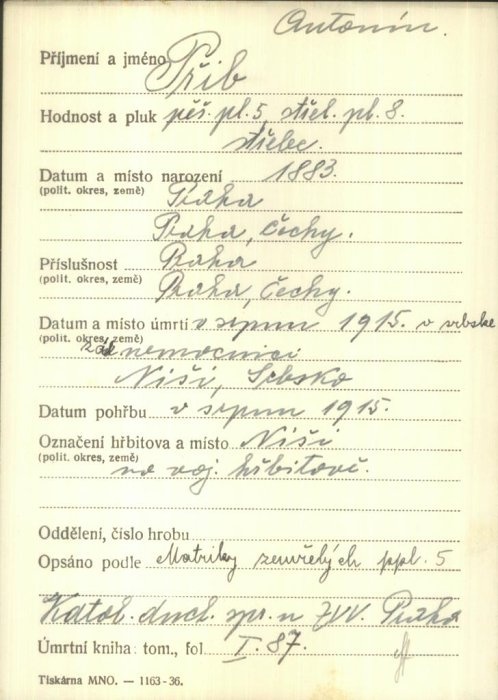 Antonín.
Příjmení a jméno Přib
Hodnost a pluk pěš. pl. 5, střel. pl. 8.
střelec.
Datum a místo narození 1883.
(polit. okres, země) Praha
Praha, Čechy.
Příslušnost Praha
(polit. okres, země) Praha, Čechy.
Datum a místo úmrtí v srpnu 1915. v srbské
(polit. okres, země) nemocnici
Niši, Srbsko
Datum pohřbu v srpnu 1915.
Označení hřbitova a místo Niši
(polit. okres, země) na voj. hřbitově.
Oddělení, číslo hrobu
Opsáno podle Matriky zemřelých ppl. 5
Katol. duch. spr. u ZVV. Praha
Úmrtní kniha: tom., fol I. 87.
Tiskárna MNO. — 1163-36.